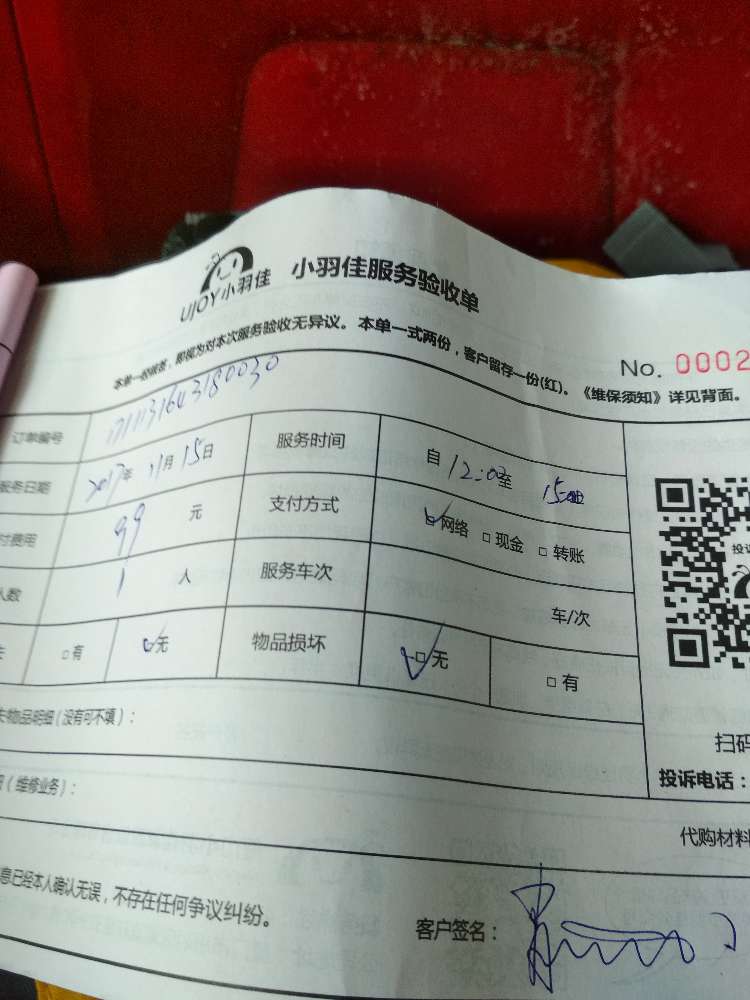 UJOY小羽佳 小羽佳服务验收单
本单一经核签，即视为对本次服务验收无异议。本单一式两份，客户留存一份(红)。《维保须知》详见背面。
No. 0002
订单编号 1711131643180030
服务日期 2017年 11月 15日 服务时间 自 12:02至
付费用 99 元 支付方式 网络 现金 转账
人数 1 人 服务车次 车/次
失 有 无 物品损坏 无 有
失物品明细(没有可不填)：
(维修业务)：
扫码
投诉电话：
代购材料
息已经本人确认无误，不存在任何争议纠纷。
客户签名：